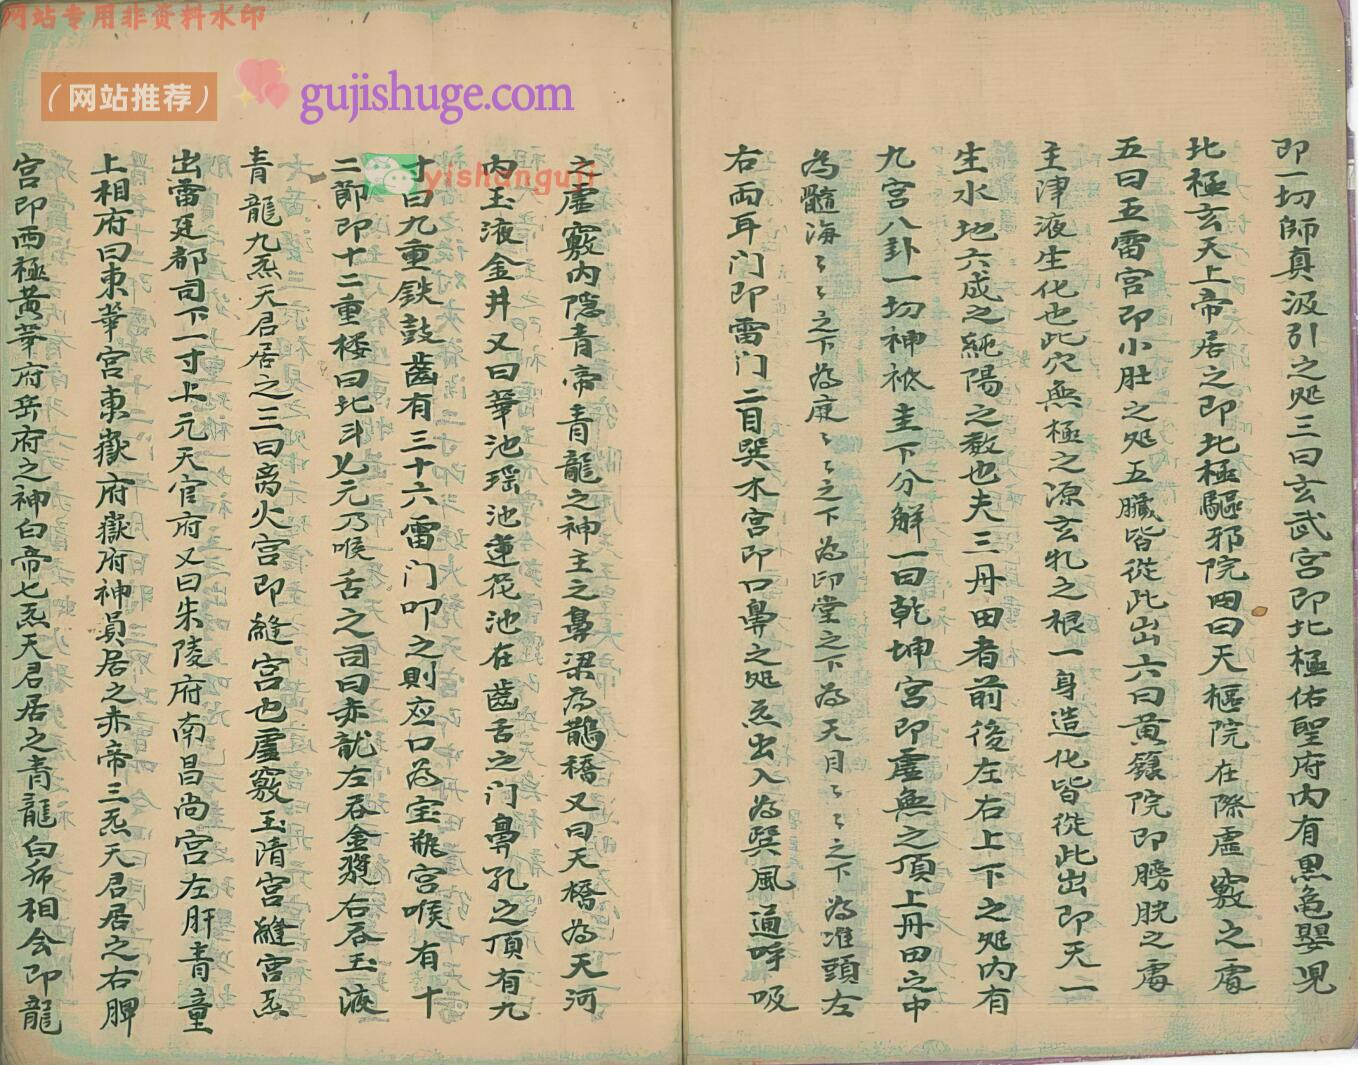 网站专用非资料水印
（网站推荐）
gujishuge.com
yishunguji
即一切師真汲引之処三曰玄武宮即北極佑聖府内有黒亀嬰児
北極玄天上帝居之即北極驅邪院四曰天樞院在際虛竅之處
五曰五雷宮即小肚之処五臟皆從此出六曰黄籙院即膀胱之處
主津液生化也此穴無極之源玄牝之根一身造化皆從此出即天一
生水地六成之純陽之数也夫三丹田者前後左右上下之処内有
九宮八卦一切神祇主下分解一曰乾坤宮即虛無之頂上丹田之中
為髓海〻〻之下為庭〻〻之下為印堂之下為天月〻〻之下為准頭左
右両耳门即雷门二目巽木宮即口鼻之処炁出入為巽風通呼吸
之虛竅内隐青帝青龍之神主之鼻梁為鵲橋又曰天橋為天河
内玉液金井又曰華池瑶池蓮花池在齒舌之门鼻孔之頂有九
寸曰九重鉄鼓齒有三十六雷门叩之則应口為宝瓶宮喉有十
二節即十二重楼曰北斗乂元乃喉舌之司曰赤龍左吞金漿右吞玉液
青龍九炁天君居之三曰离火宮即縫宮也虛竅玉清宮縫宮炁
出雷廷都司下一寸上元天官府又曰朱陵府南昌尚宮左肝青童
上相府曰東華宮東嶽府嶽府神員居之赤帝三炁天君居之右脾
宮即西極黄華府岳府之神白帝七炁天君居之青龍白虎相会即龍